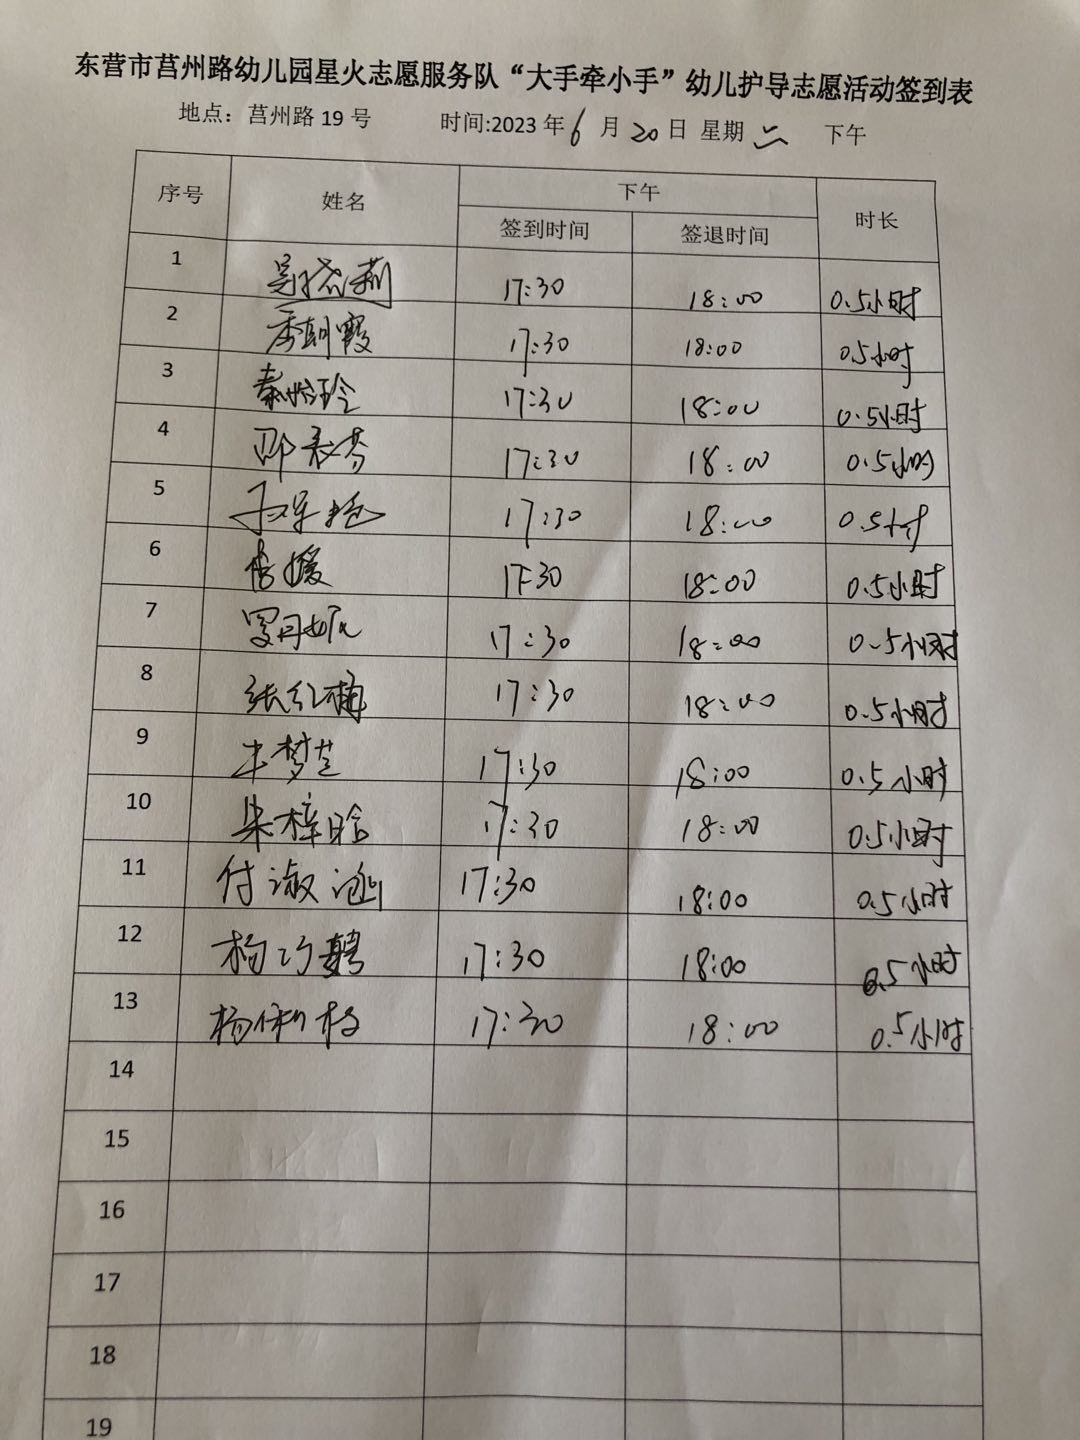 东营市莒州路幼儿园星火志愿服务队“大手牵小手”幼儿护导志愿活动签到表
地点：莒州路 19 号 时间:2023 年 6 月 20 日 星期 二 下午
序号 姓名 下午 时长
签到时间 签退时间
1 17:30 18:00 0.5小时
2 季朝霞 17:30 18:00 0.5小时
3 秦怡玲 17:30 18:00 0.5小时
4 17:30 18:00 0.5小时
5 17:30 18:00 0.5小时
6 17:30 18:00 0.5小时
7 17:30 18:00 0.5小时
8 张红梅 17:30 18:00 0.5小时
9 17:30 18:00 0.5小时
10 朱梓晗 17:30 18:00 0.5小时
11 付淑涵 17:30 18:00 0.5小时
12 杨巧聘 17:30 18:00 0.5小时
13 17:30 18:00 0.5小时
14
15
16
17
18
19